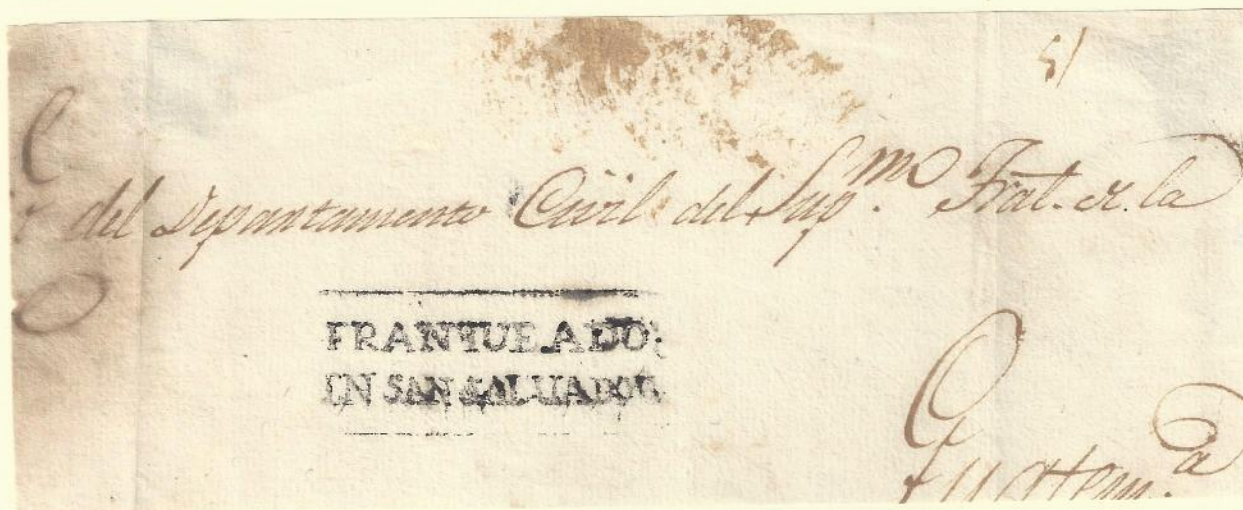 5/
del Departamento Civil del Sup.mo Trat. de la
FRANQUEADO
EN SAN SALUADOR
Guatem.a